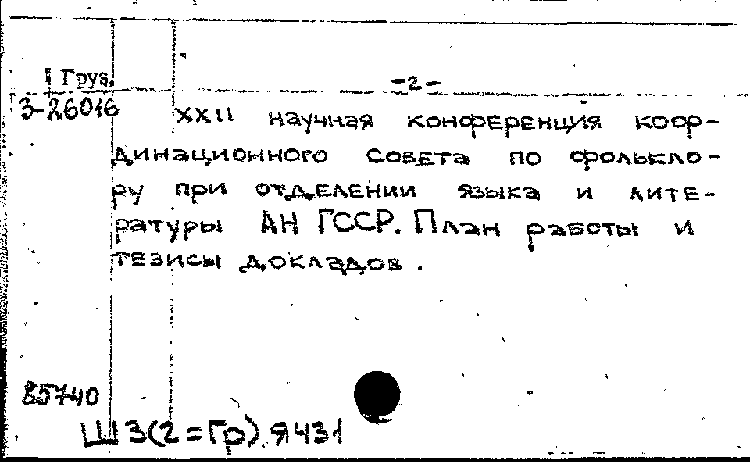 Груз.
-2-
3-26016
XXII научная конференция коор-
динационного Совета по фолькло-
ру при отделении языка и лите-
ратуры АН ГССР. План работы и
тезисы докладов.
85740
Ш3(2=Гр)я431